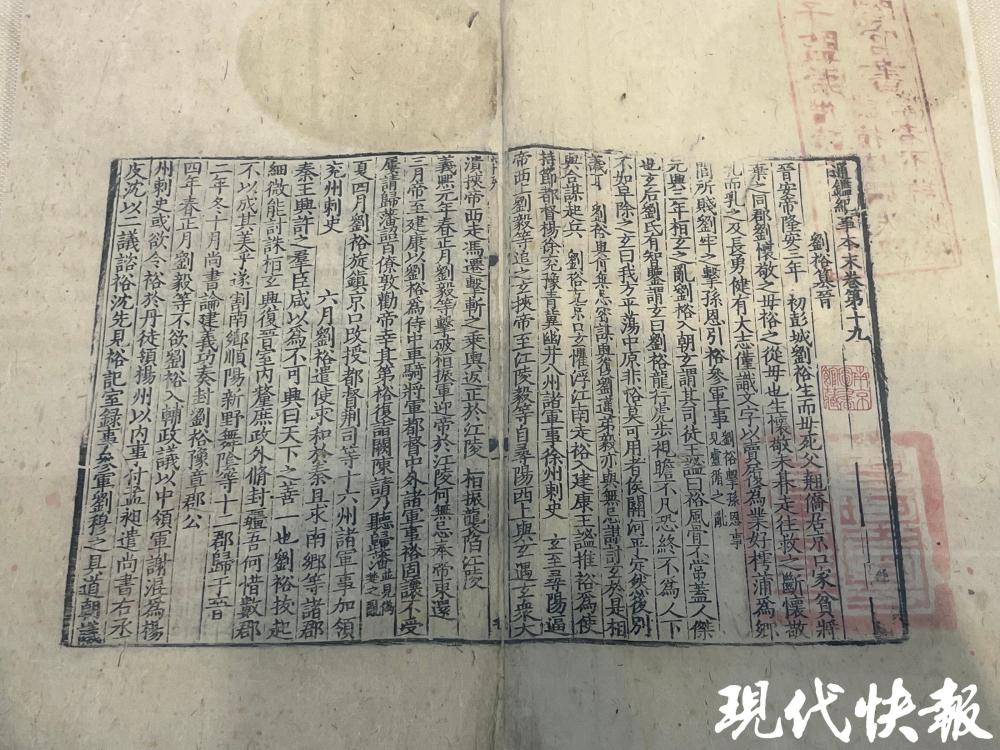 通鑑紀事本末卷第十九
劉裕篡晉
晉安帝隆安三年　初彭城劉裕生而母死父翹僑居京口家貧將
棄之同郡劉懷敬之母裕之從母也生懷敬未朞走往救之斷懷敬
乳而乳之及長勇健有大志僅識文字以賣履為業好樗蒲為鄉
閭所賤劉牢之擊孫恩引裕參軍事　劉裕擊孫恩事見盧循之亂
元興二年桓玄之亂劉裕入朝玄謂其司徒王謐曰裕風骨不常蓋人傑
也玄后劉氏有智鑒謂玄曰劉裕龍行虎步視瞻不凡恐終不為人下
不如早除之玄曰我方平蕩中原非裕莫可用者俟關河平定然後別
議耳　劉裕與何無忌密謀興復劉邁弟毅亦與無忌謀討玄於是相
與合謀起兵　劉裕克京口玄懼浮江南走裕入建康王謐推裕為使
持節都督楊徐兖豫青冀幽并八州諸軍事徐州刺史　玄至尋陽逼
帝西上劉毅等追之玄挾帝至江陵毅等自尋陽西上與玄遇玄衆大
潰挾帝西走馮遷擊斬之乘輿返正於江陵　桓振襲陷江陵
義熙元年春正月劉毅等擊破桓振軍迎帝於江陵何無忌奉帝東還
三月帝至建康以劉裕為侍中車騎將軍都督中外諸軍事裕固讓不受
屢請歸藩詔百僚敦勸帝幸其第裕復詣闕陳請乃聽歸藩　並見偽楚之亂
夏四月劉裕旋鎮京口改授都督荆司等十六州諸軍事加領
兖州刺史　　六月劉裕遣使求和於秦且求南鄉等諸郡
秦王興許之羣臣咸以為不可興曰天下之善一也劉裕拔起
細微能討誅桓玄興復晉室內釐庶政外脩封疆吾何惜數郡
不以成其美乎遂割南鄉順陽新野舞陰等十二郡歸于晉
二年冬十月尚書論建義功奏封劉裕豫章郡公
四年春正月劉毅等不欲劉裕入輔政議以中領軍謝混為揚
州刺史或欲令裕於丹徒領揚州以內事付孟昶遣尚書右丞
皮沈以二議諮裕沈先見裕記室錄事參軍劉穆之具道朝議
現代快報